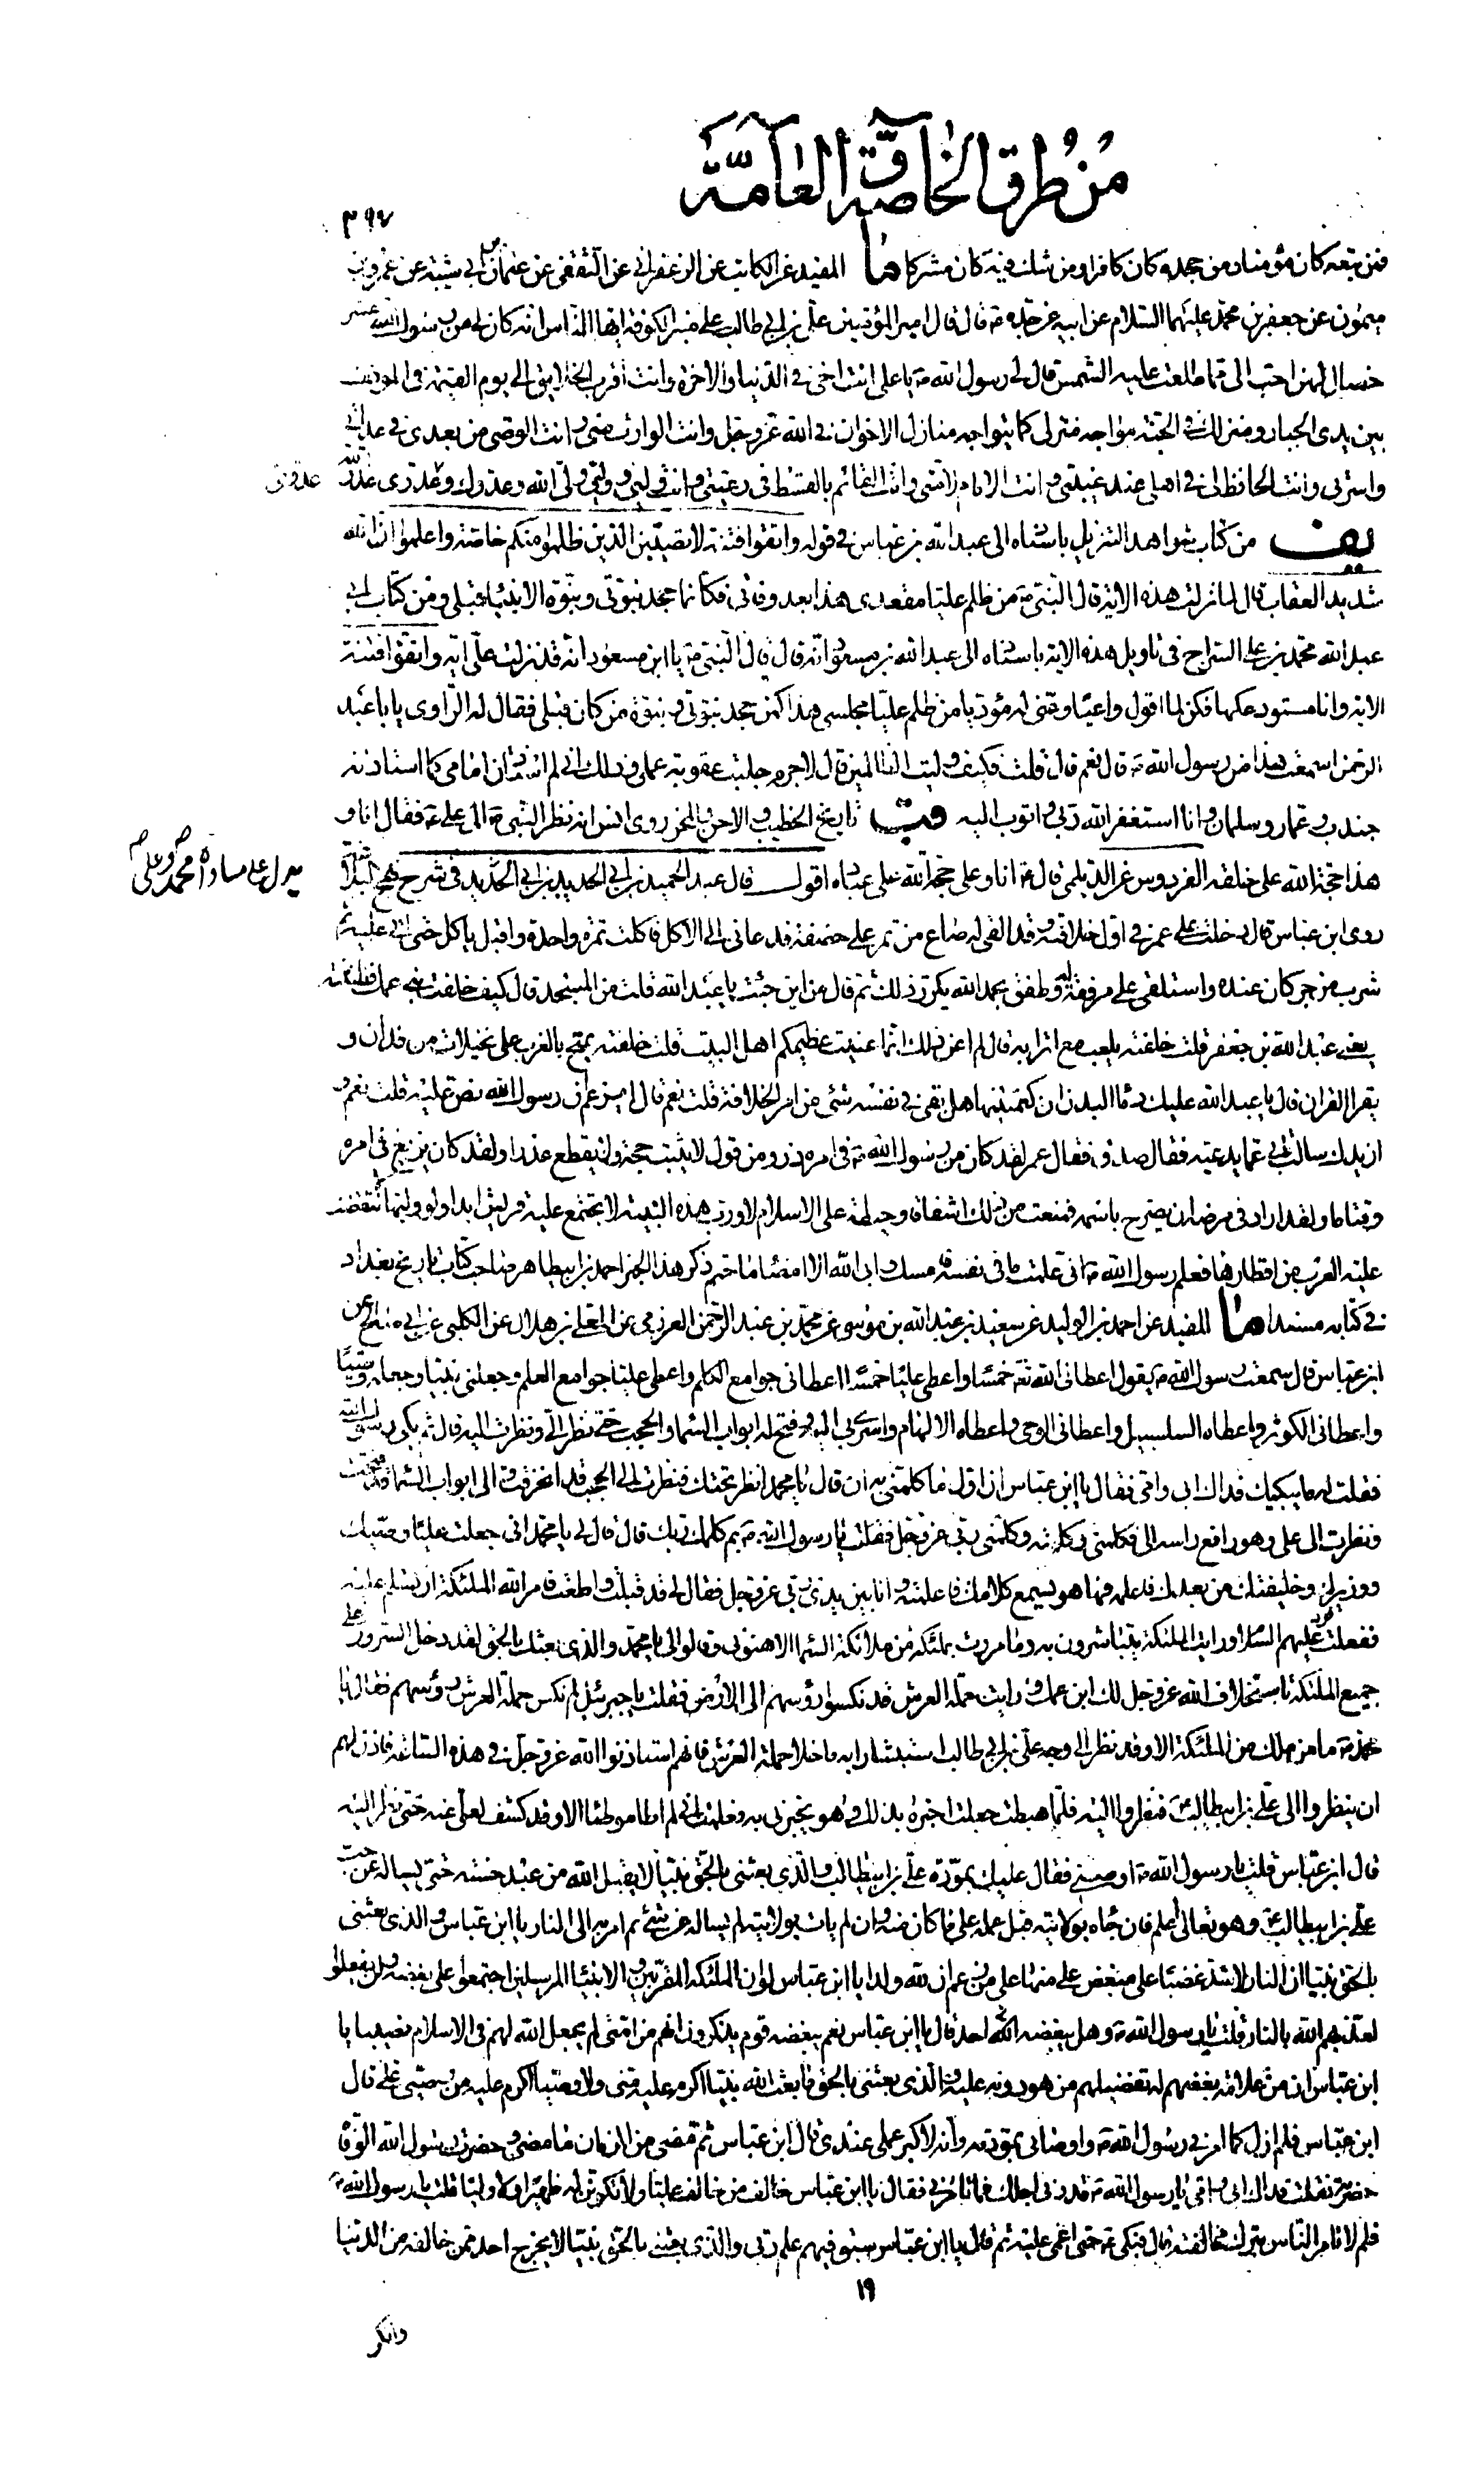 من طرق الخاصة و العامة
٣٩٧
فمن تبعه كان مؤمنا و من جحده كان كافرا و من شك فيه كان مشركا ما المفيد عن الكاتب عن الزعفراني عن الثقفي عن عثمان بن ابي شيبة عن عمرو بن
ميمون عن جعفر بن محمد عليهما السلام عن ابيه عن جده ع قال قال امير المؤمنين علي بن ابي طالب على منبر الكوفة ايها الناس انه كان لي من رسول الله عشر
خصال لهن احب الي مما طلعت عليه الشمس قال لي رسول الله ص يا علي انت اخي في الدنيا و الاخرة و انت اقرب الخلايق الي يوم القيمة في الموقف
بين يدي الجبار و منزلك في الجنة مواجه منزلي كما يتواجه منازل الاخوان في الله عز و جل و انت الوارث مني و انت الوصي من بعدي في عداتي
و اسرتي و انت الحافظ لي في اهلي عند غيبتي و انت الامام لامتي و انت القائم بالقسط في رعيتي و انت وليي و وليي ولي الله و عدوك عدوي و عدوي عدو الله
يف من كتاب شواهد التنزيل باسناده الى عبد الله بن عباس في قوله و اتقوا فتنة لا تصيبن الذين ظلموا منكم خاصة و اعلموا ان الله
شديد العقاب قال لما نزلت هذه الاية قال النبي ص من ظلم عليا مقعدي هذا بعد وفاتي فكانما جحد نبوتي و نبوة الانبياء قبلي و من كتاب ابي
عبد الله محمد بن علي السراج في تاويل هذه الاية باسناده الى عبد الله بن مسعود انه قال قال النبي ص يا ابن مسعود انه قد نزلت علي اية و اتقوا فتنة
الاية و انا مستودعكها فكن لما اقول واعيا و عني له مؤديا من ظلم عليا مجلسي هذا كمن جحد نبوتي و نبوة من كان قبلي فقال له الراوي يا با عبد
الرحمن اسمعت هذا من رسول الله ص قال نعم قال قلت فكيف وليت الظالمين قال لا جرم جلبت عقوبة عملي و ذلك اني لم استاذن امامي كما استاذنه
جندب و عمار و سلمان و انا استغفر الله ربي و اتوب اليه قب تاريخ الخطيب و الاحن و المحن روى انس انه نظر النبي ص الى علي ع فقال انا و
هذا حجة الله على خلقه الفردوس عن الديلمي قال ع انا و علي حجة الله على عباده اقول قال عبد الحميد بن ابي الحديد في شرح نهج البلاغة
روى ابن عباس قال دخلت على عمر في اول خلافته و قد القي له صاع من تمر على خصفة فدعاني الى الاكل فاكلت تمرة واحدة و اقبل ياكل حتى اتى عليه ثم
شرب من جر كان عنده و استلقى على مرفقة له و طفق يحمد الله يكرر ذلك ثم قال من اين جئت يا عبد الله قلت من المسجد قال كيف خلفت ابن عمك فظننته
يعني عبد الله بن جعفر قلت خلفته يلعب مع اترابه قال لم اعن ذلك انما عنيت عظيمكم اهل البيت قلت خلفته يمتح بالغرب على نخيلات من فلان و
يقرا القران قال يا عبد الله عليك دماء البدن ان كتمتنيها هل بقي في نفسه شيء من امر الخلافة قلت نعم قال ايزعم ان رسول الله نص عليه قلت نعم و
ازيدك سالت ابي عما يدعيه فقال صدق فقال عمر لقد كان من رسول الله ص في امره ذرو من قول لا يثبت حجة و لا يقطع عذرا و لقد كان يزيغ في امره
وقتا ما و لقد اراد في مرضه ان يصرح باسمه فمنعت من ذلك اشفاقا و حيطة على الاسلام لا و رب هذه البنية لا تجتمع عليه قريش ابدا و لو وليها لانتقضت
عليه العرب من اقطارها فعلم رسول الله ص اني علمت ما في نفسه فامسك و ابى الله الا امضاء ما حتم ذكر هذا الخبر احمد بن ابي طاهر صاحب كتاب تاريخ بغداد
في كتابه مسندا ما المفيد عن احمد بن الوليد عن سعيد بن عبد الله بن موسى عن محمد بن عبد الرحمن العرزمي عن المعلى بن هلال عن الكلبي عن ابي صالح عن
ابن عباس قال سمعت رسول الله ص يقول اعطاني الله تعه خمسا و اعطى عليا خمسا اعطاني جوامع الكلم و اعطى عليا جوامع العلم و جعلني نبيا و جعله وصيا
و اعطاني الكوثر و اعطاه السلسبيل و اعطاني الوحي و اعطاه الالهام و اسرى بي اليه و فتح له ابواب السماء و الحجب حتى نظر الي و نظرت اليه قال ثم بكى رسول الله
فقلت له ما يبكيك فداك ابي و امي فقال يا ابن عباس ان اول ما كلمني به ان قال يا محمد انظر تحتك فنظرت الى الحجب قد انخرقت و الى ابواب السماء قد فتحت
و نظرت الى علي و هو رافع راسه الي فكلمني و كلمته و كلمني ربي عز و جل فقلت يا رسول الله ص بم كلمك ربك قال قال لي يا محمد اني جعلت عليا وصيك
و وزيرك و خليفتك من بعدك فاعلمه فها هو يسمع كلامك فاعلمته و انا بين يدي ربي عز و جل فقال لي قد قبلت و اطعت فامر الله الملئكة ان تسلم عليه
ففعلت فرد عليهم السلام و رايت الملئكة يتباشرون به و ما مررت بملئكة من ملائكة السماء الا هنوني و قالوا لي يا محمد و الذي بعثك بالحق لقد دخل السرور على
جميع الملئكة باستخلاف الله عز و جل لك ابن عمك و رايت حملة العرش قد نكسوا رؤسهم الى الارض فقلت يا جبرئيل لم نكس حملة العرش رؤسهم فقال يا
محمد ص ما من ملك من الملئكة الا و قد نظر الى وجه علي بن ابي طالب استبشارا به ما خلا حملة العرش فانهم استاذنوا الله عز و جل في هذه الساعة فاذن لهم
ان ينظروا الى علي بن ابيطالب ع فنظروا اليه فلما هبطت جعلت اخبره بذلك و هو يخبرني به فعلمت اني لم اطا موطئا الا و قد كشف لعلي عنه حتى نظر اليه
قال ابن عباس قلت يا رسول الله ص اوصني فقال عليك بمودة علي بن ابيطالب و الذي بعثني بالحق نبيا لا يقبل الله من عبد حسنة حتى يساله عن حب
علي بن ابيطالب ع و هو تعالى اعلم فان جاءه بولايته قبل عمله على ما كان منه و ان لم يات بولايته لم يساله عن شيء ثم امر به الى النار يا ابن عباس و الذي بعثني
بالحق نبيا ان النار لاشد غضبا على مبغض علي منها على من زعم ان لله ولدا يا ابن عباس لو ان الملئكة المقربين و الانبياء المرسلين اجتمعوا على بغضه و لن يفعلوا
لعذبهم الله بالنار قلت يا رسول الله ص و هل يبغضه احد قال يا ابن عباس نعم يبغضه قوم يذكرون انهم من امتي لم يجعل الله لهم في الاسلام نصيبا يا
ابن عباس ان من علامة بغضهم له تفضيلهم من هو دونه عليه و الذي بعثني بالحق ما بعث الله نبيا اكرم عليه مني و لا وصيا اكرم عليه من وصيي علي قال
ابن عباس فلم ازل كما امرني رسول الله ص و اوصاني بمودته و انه لاكبر عملي عندي قال ابن عباس ثم مضى من الزمان ما مضى و حضرت رسول الله الوفاة
حضرته فقلت فداك ابي و امي يا رسول الله ص قد دنى اجلك فما تامرني فقال يا ابن عباس خالف من خالف عليا و لا تكونن له ظهيرا و لا وليا قلت يا رسول الله ص
فلم لا تامر الناس بترك مخالفته قال فبكى ع حتى اغمي عليه ثم قال يا ابن عباس سبق فيهم علم ربي و الذي بعثني بالحق نبيا لا يخرج احد ممن خالفه من الدنيا
١٩
وانكر
يدل على مساواة محمد ص و علي ص